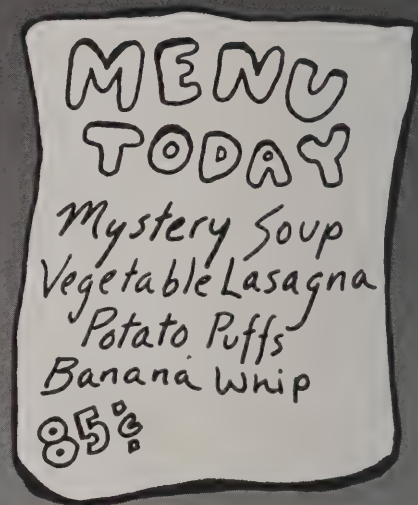 MENU
TODAY
Mystery Soup
Vegetable Lasagna
Potato Puffs
Banana Whip
85¢